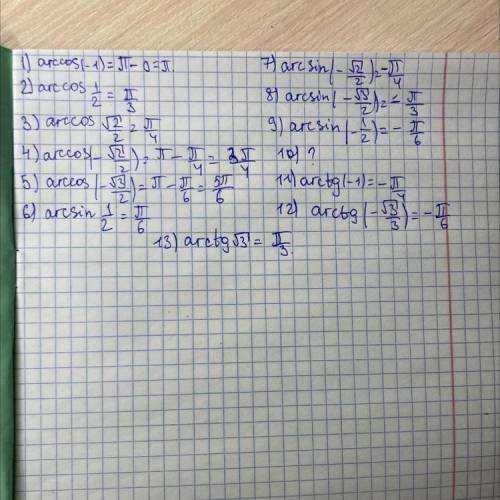 1) arccos(-1) = π - 0 = π.
2) arccos 1/2 = π/3
3) arccos √2/2 = π/4
4) arccos(-√2/2) = π - π/4 = 3π/4
5) arccos(-√3/2) = π - π/6 = 5π/6
6) arcsin 1/2 = π/6
7) arcsin(-√2/2) = -π/4
8) arcsin(-√3/2) = -π/3
9) arcsin(-1/2) = -π/6
10) ?
11) arctg(-1) = -π/4
12) arctg(-√3/3) = -π/6
13) arctg √3 = π/3.